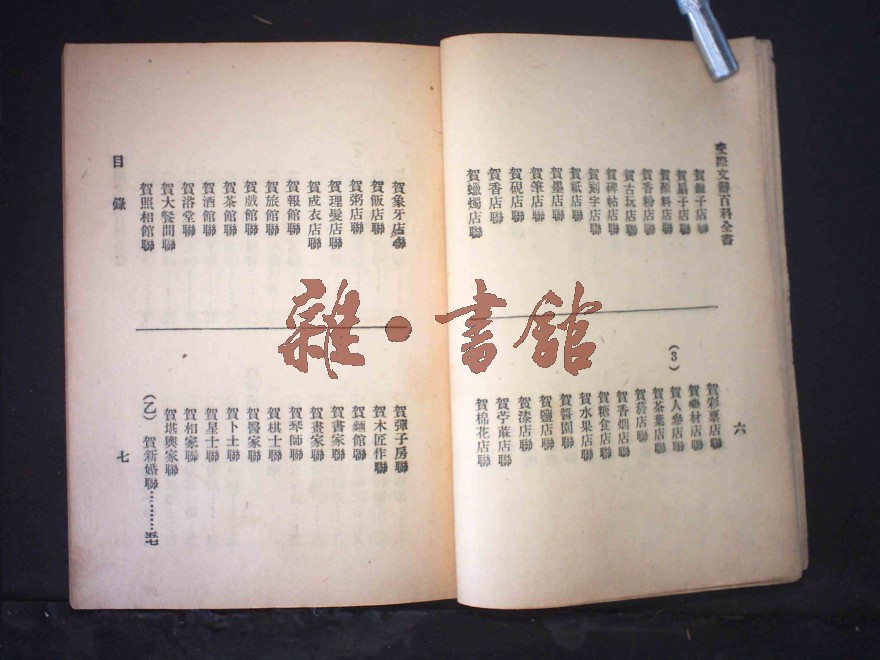 交際文辭百科全書
賀鏡子店聯
賀扇子店聯
賀顏料店聯
賀香粉店聯
賀古玩店聯
賀碑帖店聯
賀刻字店聯
賀紙店聯
賀墨店聯
賀筆店聯
賀硯店聯
賀香店聯
賀蠟燭店聯
六
賀彩票店聯
賀藥材店聯
賀人參店聯
(3)
賀茶葉店聯
賀菸店聯
賀香烟店聯
賀糖食店聯
賀水果店聯
賀醬園聯
賀鹽店聯
賀漆店聯
賀苧蔴店聯
賀棉花店聯
賀象牙店聯
賀飯店聯
賀粥店聯
賀理髮店聯
賀成衣店聯
賀報館聯
賀旅館聯
賀戲館聯
賀茶館聯
賀酒館聯
賀浴堂聯
賀大餐間聯
賀照相館聯
目錄
賀彈子房聯
賀木匠作聯
賀麵館聯
賀書家聯
賀畫家聯
賀琴師聯
賀棋士聯
賀醫家聯
賀卜士聯
賀星士聯
賀相家聯
賀堪輿家聯
(乙)賀新婚聯………五七
七
雜·書館